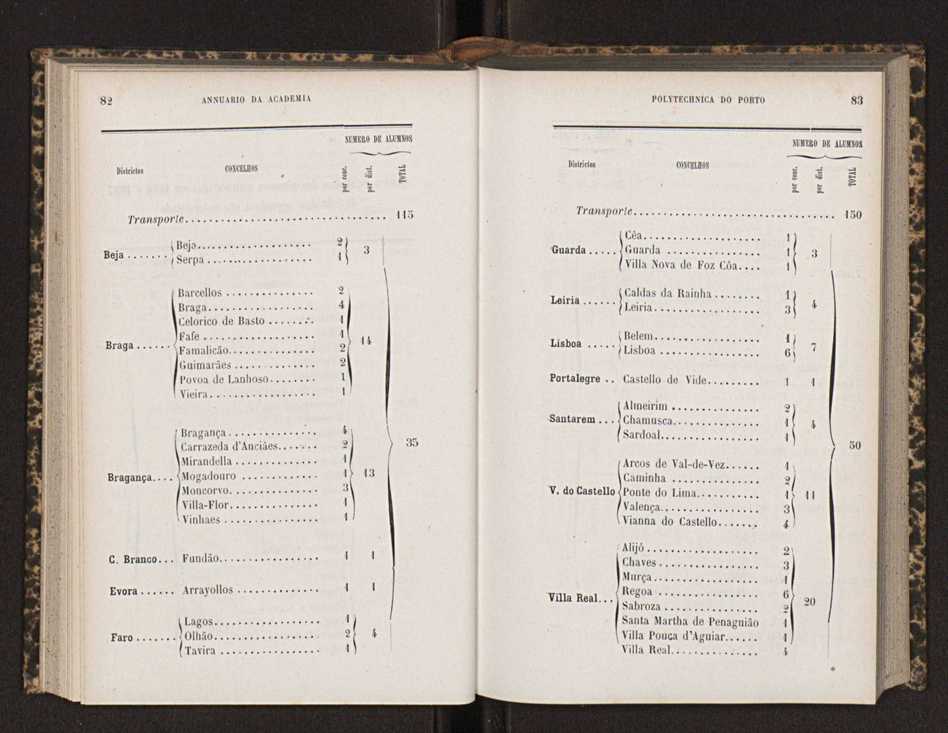 82
ANNUARIO DA ACADEMIA
NUMERO DE ALUMNOS
Districtos CONCELHOS por conc. por dist. TOTAL
Transporte 115
Beja
Beja 2
Serpa 1
3
Braga
Barcellos 2
Braga 4
Celorico de Basto 1
Fafe 1
Famalicão 2
Guimarães 2
Povoa de Lanhoso 1
Vieira 1
14
Bragança
Bragança 4
Carrazeda d'Anciães 2
Mirandella 1
Mogadouro 1
Moncorvo 3
Villa-Flor 1
Vinhaes 1
13
C. Branco Fundão 1 1
Evora Arrayollos 1 1
Faro
Lagos 1
Olhão 2
Tavira 1
4
35
POLYTECHNICA DO PORTO
83
NUMERO DE ALUMNOS
Districtos CONCELHOS por conc. por dist. TOTAL
Transporte 150
Guarda
Cêa 1
Guarda 1
Villa Nova de Foz Côa 1
3
Leiria
Caldas da Rainha 1
Leiria 3
4
Lisboa
Belem 1
Lisboa 6
7
Portalegre Castello de Vide 1 1
Santarem
Almeirim 2
Chamusca 1
Sardoal 1
4
V. do Castello
Arcos de Val-de-Vez 1
Caminha 2
Ponte do Lima 1
Valença 3
Vianna do Castello 4
11
Villa Real
Alijó 2
Chaves 3
Murça 1
Regoa 6
Sabroza 2
Santa Martha de Penaguião 1
Villa Pouca d'Aguiar 1
Villa Real 4
20
50
*